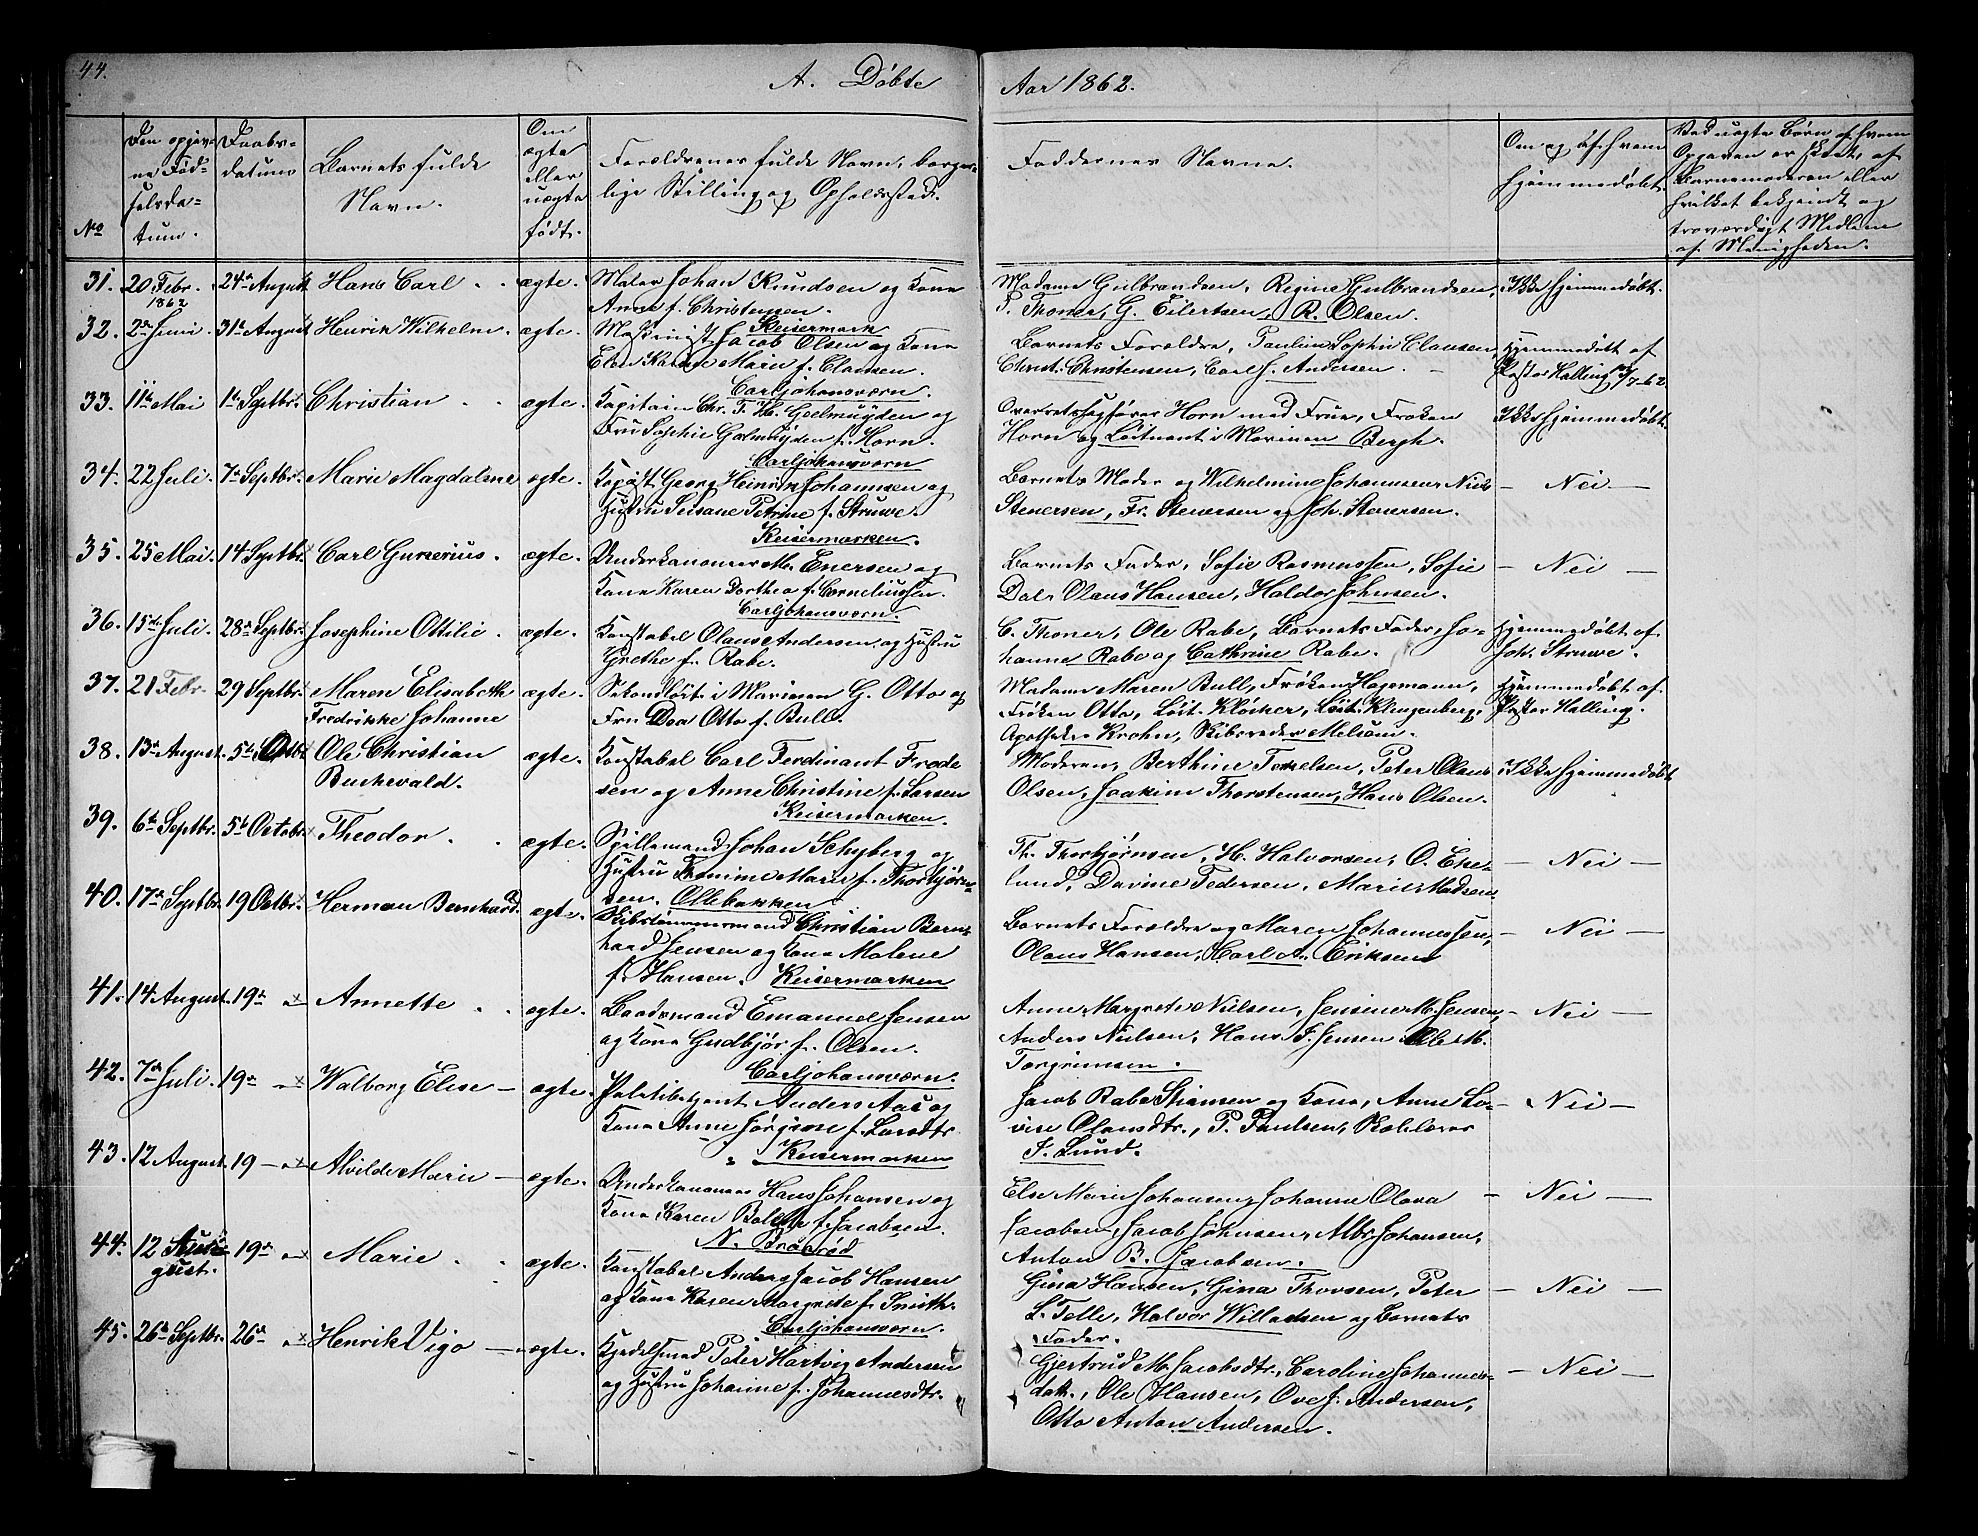 44.
A. Döbte
Aar 1862.
No
Den opgiv-
ne Föd-
selsda-
tum.
Daabs-
datum
Barnets fulde
Navn.
Om
ægte
eller
uægte
født.
Forældrenes fulde Navn, borger-
lige Stilling og Opholdssted.
Faddernes Navne.
Om og af hvem
hjemmedøbt.
Ved uægte Børn af hvem
Opgaven er skeet, af
Barnemoderen eller
hvilket bekjendt og
troværdigt Medlem
af Menigheden.
31. 20 Febr. 1862 24de August Hans Carl ægte. Maler Johan Knudsen og Kone
Anne f. Christensen.
Keisermark
Madame Gulbrandsen, Regine Gulbrandsen,
P. Thoner, G. Eilertsen, R. Olsen.
Ikke hjemmedøbt.
32. 2den Juni. 31te August Henrik Wilhelm. ægte. Maskinist Jacob Olsen og Kone
Elen Karen Marie f. Clausen.
Carljohansværn.
Barnets Forældre, Pauline Sophie Clausen,
Christ. Christensen, Carl J. Andersen.
Hjemmedøbt af
Pastor Halling /7-62.
33. 11te Mai 1te Septbr. Christian ægte. Kapitain Chr. F. H. Geelmuyden og
Fru Sophie Geelmuyden f. Horn.
Carljohansværn
Overretssagfører Horn med Frue, Frøken
Horn og Løitnant i Marinen Bergh.
Ikke hjemmedøbt.
34. 22 Juli. 7de Septbr. Marie Magdalene ægte. Kopist Georg Heinrik Johannsen og
Hustru Susane Petrine f. Struwe.
Keisermarken.
Barnets Moder og Wilhelmine Johannsen, Niels
Stenersen, Fr. Stenersen og Joh. Stenersen.
— Nei —
35. 25 Mai. 14 Septbr. Carl Gunerius. ægte. Underkanoner M. Enersen og
Kone Karen Dorthea f. Corneliussen.
Carljohansværn.
Barnets Fader, Sofie Rasmussen, Sofie
Dal, Olaus Hansen, Haldor Johnsen.
— Nei —
36. 15de Juli. 28de Septbr. Josephine Ottilie. ægte. Konstabel Olaus Andersen og Hustru
Grethe f. Rabe.
C. Thoner, Ole Rabe, Barnets Fader, Jo-
hanne Rabe og Cathrine Rabe.
Hjemmedøbt af
Joh. Struwe.
37. 21 Febr. 29 Septbr. Maren Elisabeth
Fredrikke Johanne
ægte. Sekondløit. i Marinen G. Otto og
Fru Dea Otto f. Bull.
Madame Maren Bull, Frøken Hagemann,
Frøken Otto, Løit. Kløcker, Løit. Klingenberg,
Apotheker Krohn, Skibsreder Melsom.
Hjemmedøbt af
Pastor Halling.
38. 13de August. 5te Octbr. Ole Christian
Buchwald.
ægte. Konstabel Carl Ferdinant Frede
sen og Anne Christine f. Larsen
Keisermarken.
Moderen, Berthine Torrelsen, Peter Olaus
Olsen, Joakim Thorstensen, Hans Olsen.
Ikke hjemmedøbt
39. 6te Septbr. 5te Octobr. Theodor. ægte. Spillemand Johan Schyberg og
Hustru Marie f. Thorbjørn-
sen. Ollebakken.
Th. Thorbjørnsen, H. Halvorsen, O. Eke-
lund, Davine Pedersen, Marie Madsen.
— Nei —
40. 17de Septbr. 19 Octbr. Herman Bernhard. ægte. Skibstømmermand Christian Bern-
hard Jensen og Kone Malene
f. Hansen. Keisermarken
Barnets Forældre og Maren Johannessen,
Olaus Hansen, Carl A. Eriksen
— Nei —
41. 14 August. 19de " Annette ægte. Baadsmand Emanuel Jensen
og Kone Gudbjør f. Olsen.
Carljohansværn.
Anne Margrete Nielsen, Jensine M. Jensen,
Anders Nielsen, Hans J. Jensen, Ole M.
Torgrimsen.
— Nei —
42. 7de Juli. 19de " Walborg Elise — ægte. Politibetjent Anders Aas og
Kone Anne Jørgine f. Larsdtr.
Keisermarken
Jacob Rabe Stiansen og Kone, Anne Lo-
vise Olausdtr., P. Paulsen, Skolelærer
J. Lund.
— Nei —
43. 12 August. 19 — " Alvilde Marie — ægte. Underkanoner Hans Johansen og
Kone Karen Bolette f. Jacobsen.
N. Braarød
Else Marie Johansen, Johanne Olava
Jacobsen, Jacob Johnsen, Alb. Johansen,
Anton B. Jacobsen.
— Nei —
44. 12 Au-
gust.
19de " Marie ægte. Konstabel Anders Jacob Hansen
og Kone Karen Margrete f. Smith.
Carljohansværn.
Gina Hansen, Gina Thorsen, Peter
L. Telle, Halvor Willadsen og Barnets
Fader.
— Nei —
45. 26de Septbr. 26de " Henrik Vigo — ægte. Kjedelsmed Peter Hartvig Andersen
og Hustru Johanne f. Johannesdtr.
Gjertrud M. Jacobsdtr., Caroline Johannes-
datt., Ole Hansen, Ove J. Andersen,
Otto Anton Andersen.
— Nei —